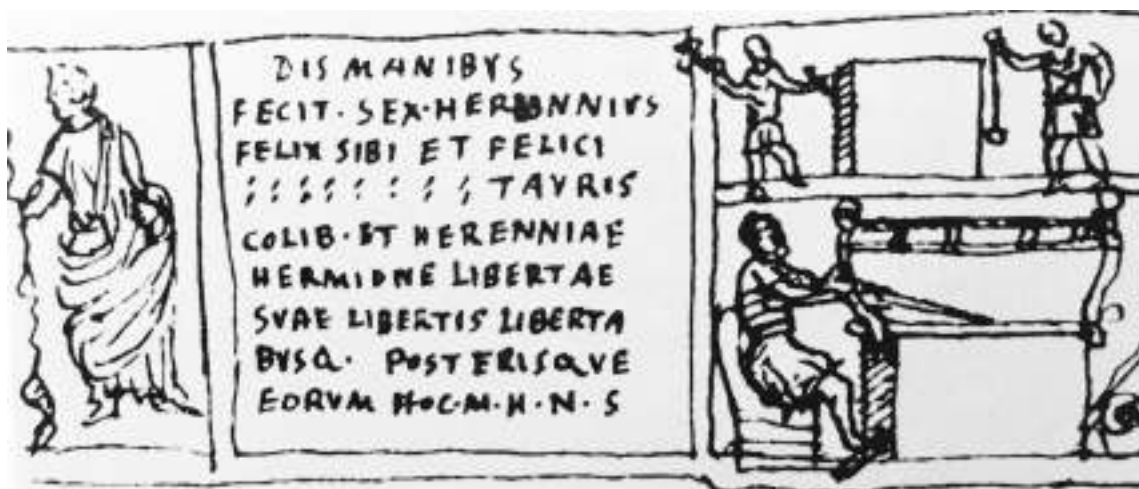 DIS MANIBVS
FECIT · SEX · HERENNIVS
FELIX SIBI ET FELICI
; ; ; ; ; ; ; ; TAVRIS
COLIB · ET HERENNIAE
HERMIONE LIBERTAE
SVAE LIBERTIS LIBERTA
BVSQ · POSTERISQVE
EORVM HOC · M · H · N · S